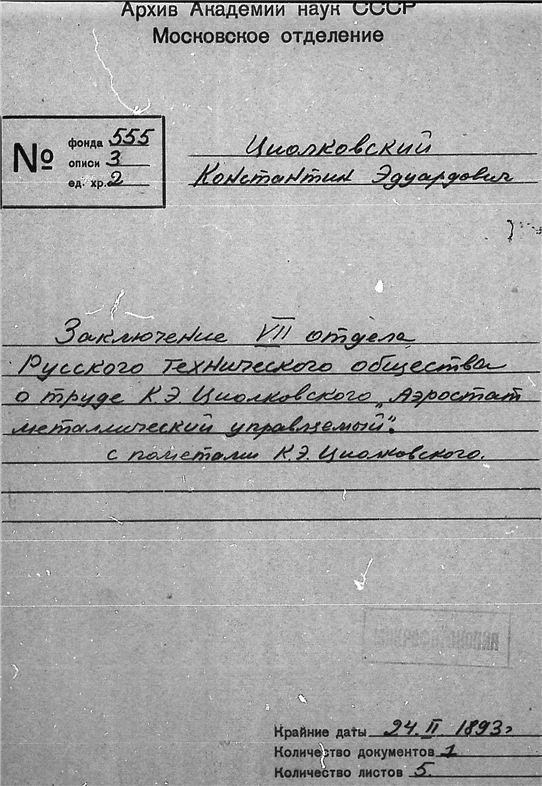 Архив Академии наук СССР
Московское отделение
№ фонда 555
описи 3
ед. хр. 2
Циолковский
Константин Эдуардович
Заключение VII отдела
Русского технического общества
о труде К.Э. Циолковского „Аэростат
металлический управляемый".
с пометами К.Э. Циолковского.
Крайние даты 24. II. 1893г
Количество документов 1
Количество листов 5.